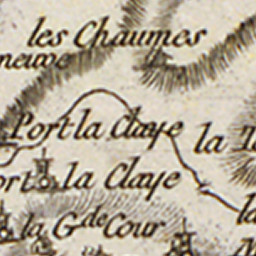 les Chaumes
neuve
Port la Claye
la
ort la Claye
la
la G.de Cour